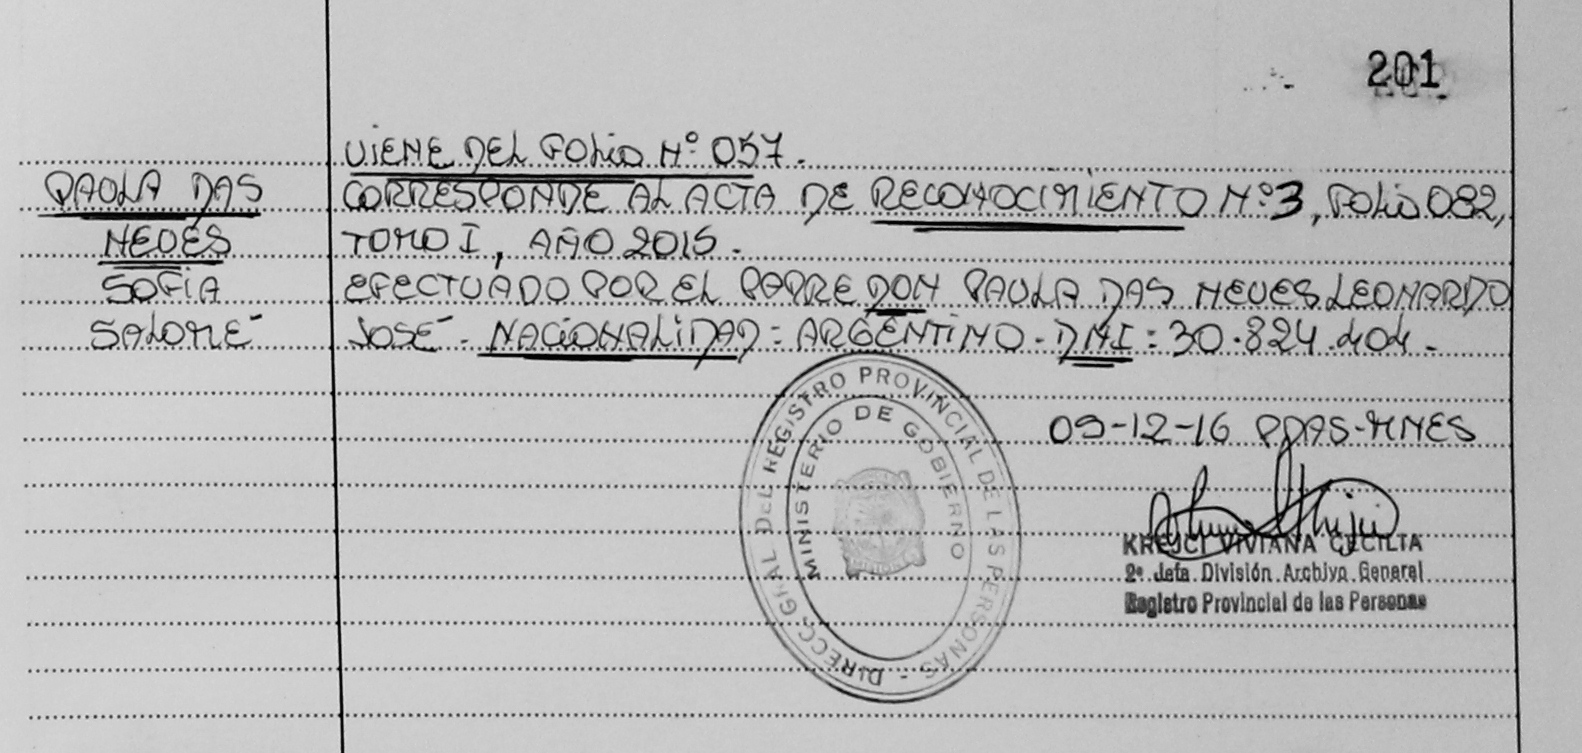 201
VIENE DEL FOLIO Nº 057.
PAOLA DAS
NEVES
SOFIA
SALOMÉ
CORRESPONDE AL ACTA DE RECONOCIMIENTO Nº 3, FOLIO 082,
TOMO I, AÑO 2015.
EFECTUADO POR EL PADRE DON PAULA DAS NEVES LEONARDO
JOSÉ - NACIONALIDAD: ARGENTINO - DNI: 30.824.404.
09-12-16 PDAS-MNES
DIRECC. GRAL DEL REGISTRO PROVINCIAL DE LAS PERSONAS -
MINISTERIO DE GOBIERNO
KREJCI VIVIANA CECILIA
2ª Jefa División Archivo General
Registro Provincial de las Personas